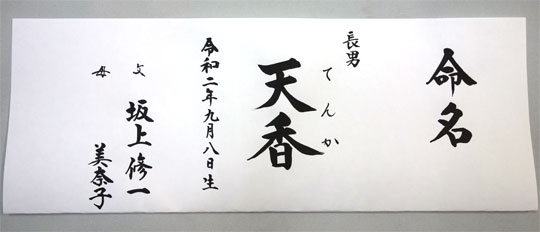 命名
長男
てんか
天香
令和二年九月八日生
父 坂上修一
母 美奈子